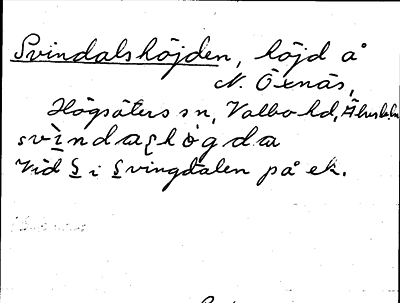 Svindalshöjden, höjd å
N. Öxnäs,
Högsäters sn, Valbo hd, Älvsb. län
svìndaɽhögda
Vid S i Svingdalen på ek.